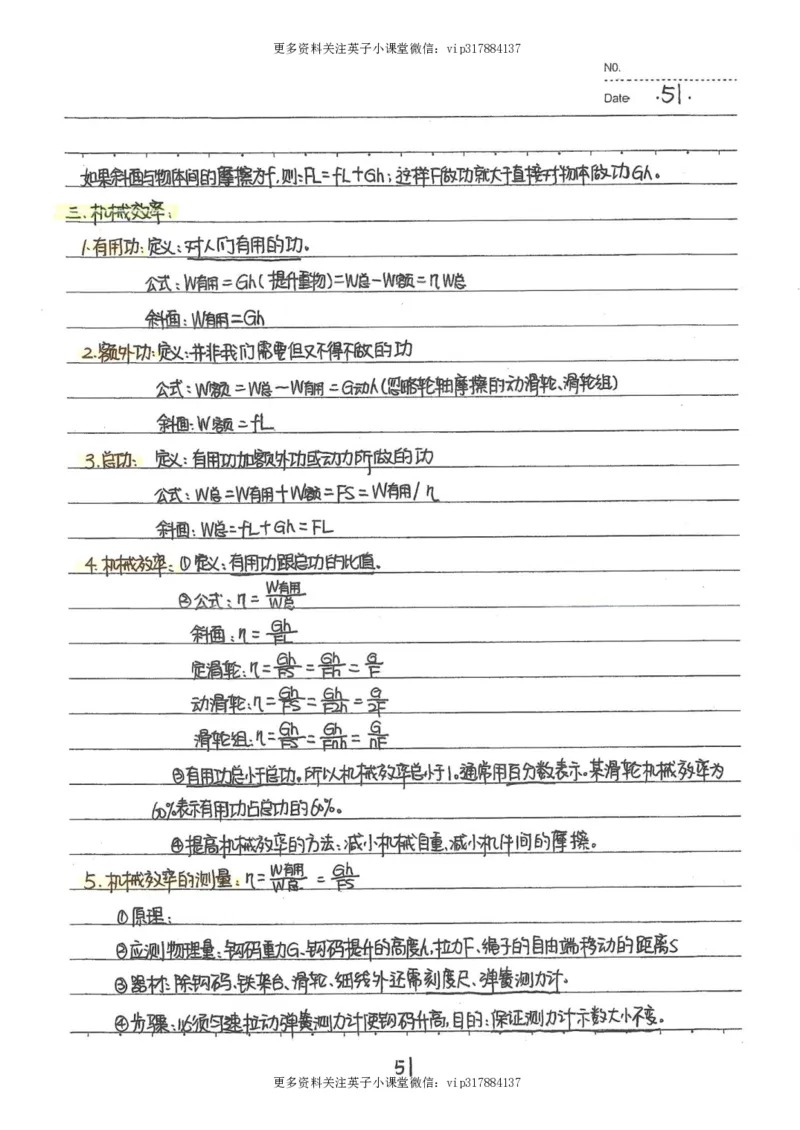 更多资料关注英子小课堂微信：vip317884137
NO.
Date ·51·
如果斜面与物体间的摩擦为f,则:FL=fL+Gh;这样F做功就大于直接对物体做功Gh。
三.机械效率:
1.有用功:定义:对人们有用的功。
公式:W有用=Gh(提升重物)=W总-W额=ηW总
斜面:W有用=Gh
2.额外功:定义:并非我们需要但又不得不做的功
公式:W额=W总-W有用=G动h(忽略轮轴摩擦的动滑轮、滑轮组)
斜面:W额=fL
3.总功: 定义:有用功加额外功或动力所做的功
公式:W总=W有用+W额=FS=W有用/η
斜面:W总=fL+Gh=FL
4.机械效率:①定义:有用功跟总功的比值。
②公式:η=W有用/W总
斜面:η=Gh/FL
定滑轮:η=Gh/FS=Gh/Fh=G/F
动滑轮:η=Gh/FS=Gh/F2h=G/2F
滑轮组:η=Gh/FS=Gh/Fnh=G/nF
③有用功总小于总功,所以机械效率总小于1。通常用百分数表示。某滑轮机械效率为
60%表示有用功占总功的60%。
④提高机械效率的方法:减小机械自重、减小机件间的摩擦。
5.机械效率的测量:η=W有用/W总=Gh/FS
①原理:
②应测物理量:钩码重力G、钩码提升的高度h、拉力F、绳子的自由端移动的距离S
③器材:除钩码、铁架台、滑轮、细线外还需刻度尺、弹簧测力计。
④步骤:必须匀速拉动弹簧测力计使钩码升高,目的:保证测力计示数大小不变。
51
更多资料关注英子小课堂微信：vip317884137